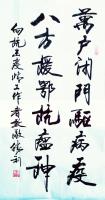 萬户闭門驅病疫
八方援鄂抗瘟神
向抗击疫情工作者致敬